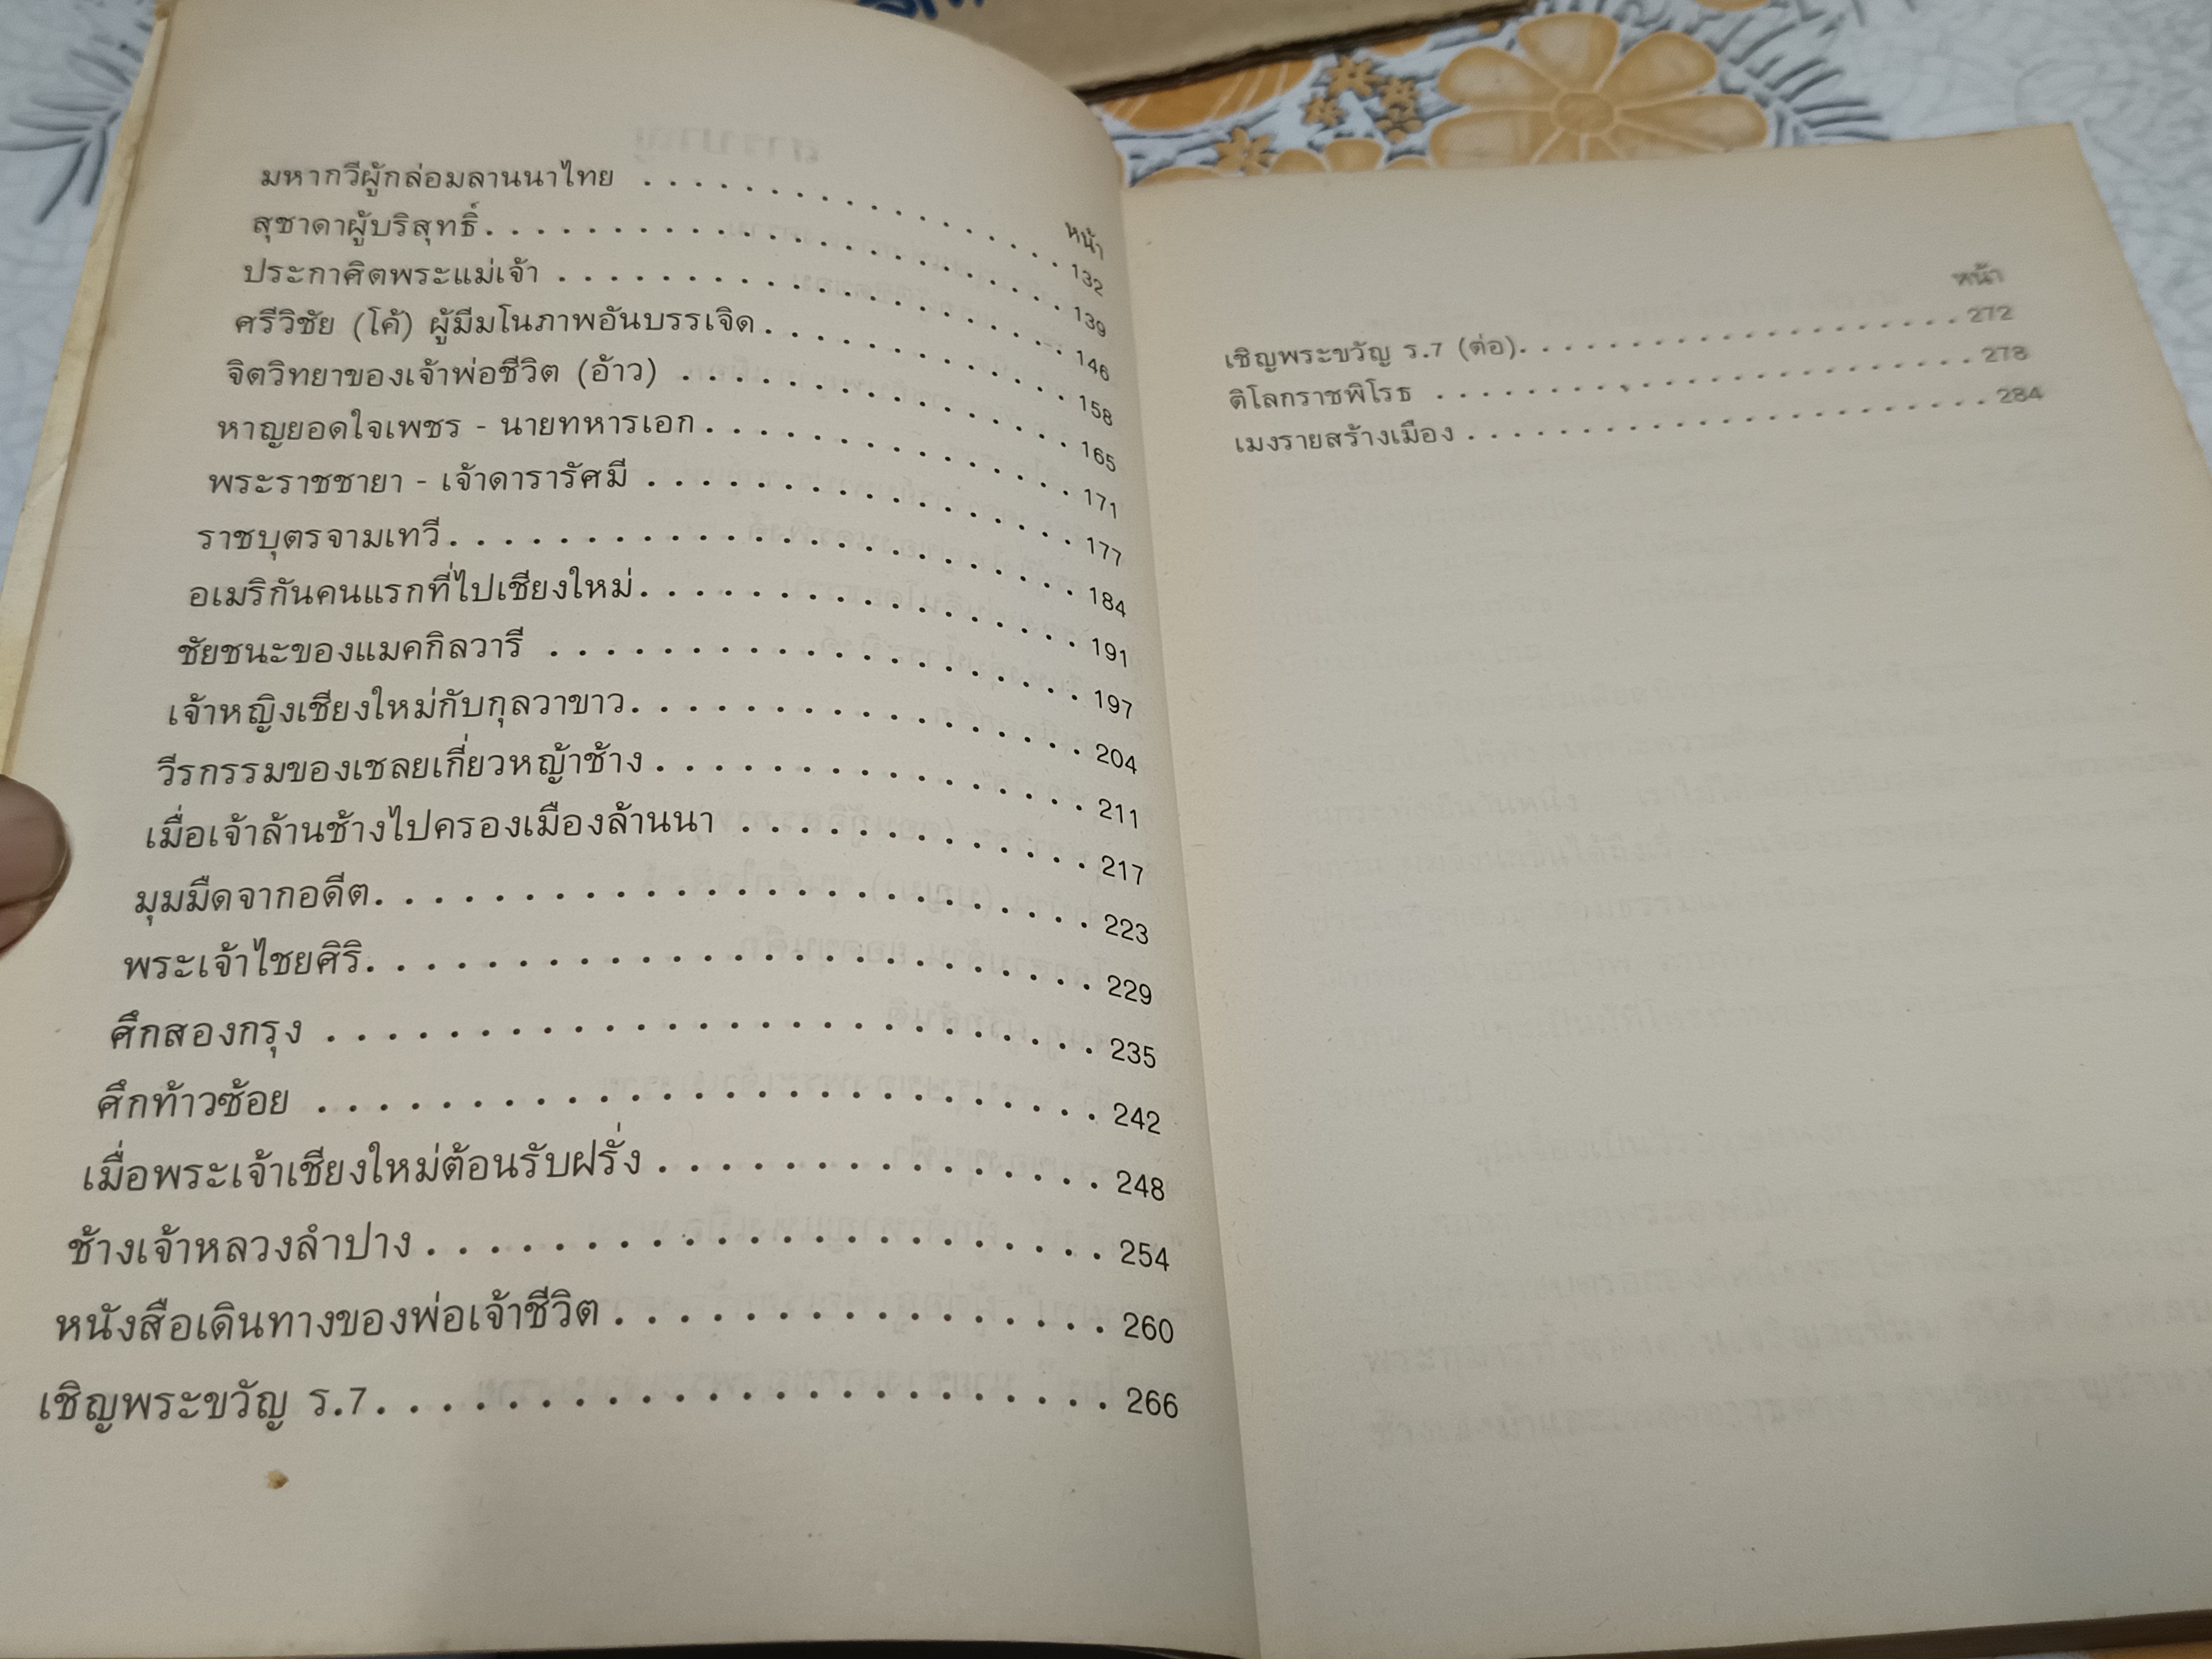 หน้า
มหากวีผู้กล่อมลานนาไทย . . . . . . . . . . . . . . . . . 132
สุชาดาผู้บริสุทธิ์. . . . . . . . . . . . . . . . . . . . . . . 139
ประกาศิตพระแม่เจ้า . . . . . . . . . . . . . . . . . . . . 146
ศรีวิชัย (โค้) ผู้มีมโนภาพอันบรรเจิด. . . . . . . . . . . . 158
จิตวิทยาของเจ้าพ่อชีวิต (อ้าว) . . . . . . . . . . . . . . . 165
หาญยอดใจเพชร - นายทหารเอก. . . . . . . . . . . . . . 171
พระราชชายา - เจ้าดารารัศมี . . . . . . . . . . . . . . . . 177
ราชบุตรจามเทวี. . . . . . . . . . . . . . . . . . . . . . . 184
อเมริกันคนแรกที่ไปเชียงใหม่. . . . . . . . . . . . . . . . 191
ชัยชนะของแมคกิลวารี . . . . . . . . . . . . . . . . . . . 197
เจ้าหญิงเชียงใหม่กับกุลวาขาว. . . . . . . . . . . . . . . . 204
วีรกรรมของเชลยเกี่ยวหญ้าช้าง . . . . . . . . . . . . . . . 211
เมื่อเจ้าล้านช้างไปครองเมืองล้านนา . . . . . . . . . . . . 217
มุมมืดจากอดีต. . . . . . . . . . . . . . . . . . . . . . . . 223
พระเจ้าไชยศิริ. . . . . . . . . . . . . . . . . . . . . . . . 229
ศึกสองกรุง . . . . . . . . . . . . . . . . . . . . . . . . . 235
ศึกท้าวซ้อย . . . . . . . . . . . . . . . . . . . . . . . . . 242
เมื่อพระเจ้าเชียงใหม่ต้อนรับฝรั่ง . . . . . . . . . . . . . . 248
ช้างเจ้าหลวงลำปาง . . . . . . . . . . . . . . . . . . . . . 254
หนังสือเดินทางของพ่อเจ้าชีวิต . . . . . . . . . . . . . . . 260
เชิญพระขวัญ ร.7. . . . . . . . . . . . . . . . . . . . . . . 266
หน้า
เชิญพระขวัญ ร.7 (ต่อ). . . . . . . . . . . . . . . . . . . . 272
ติโลกราชพิโรธ . . . . . . . . . . . . . . . . . . . . . . . 278
เมงรายสร้างเมือง . . . . . . . . . . . . . . . . . . . . . . 284